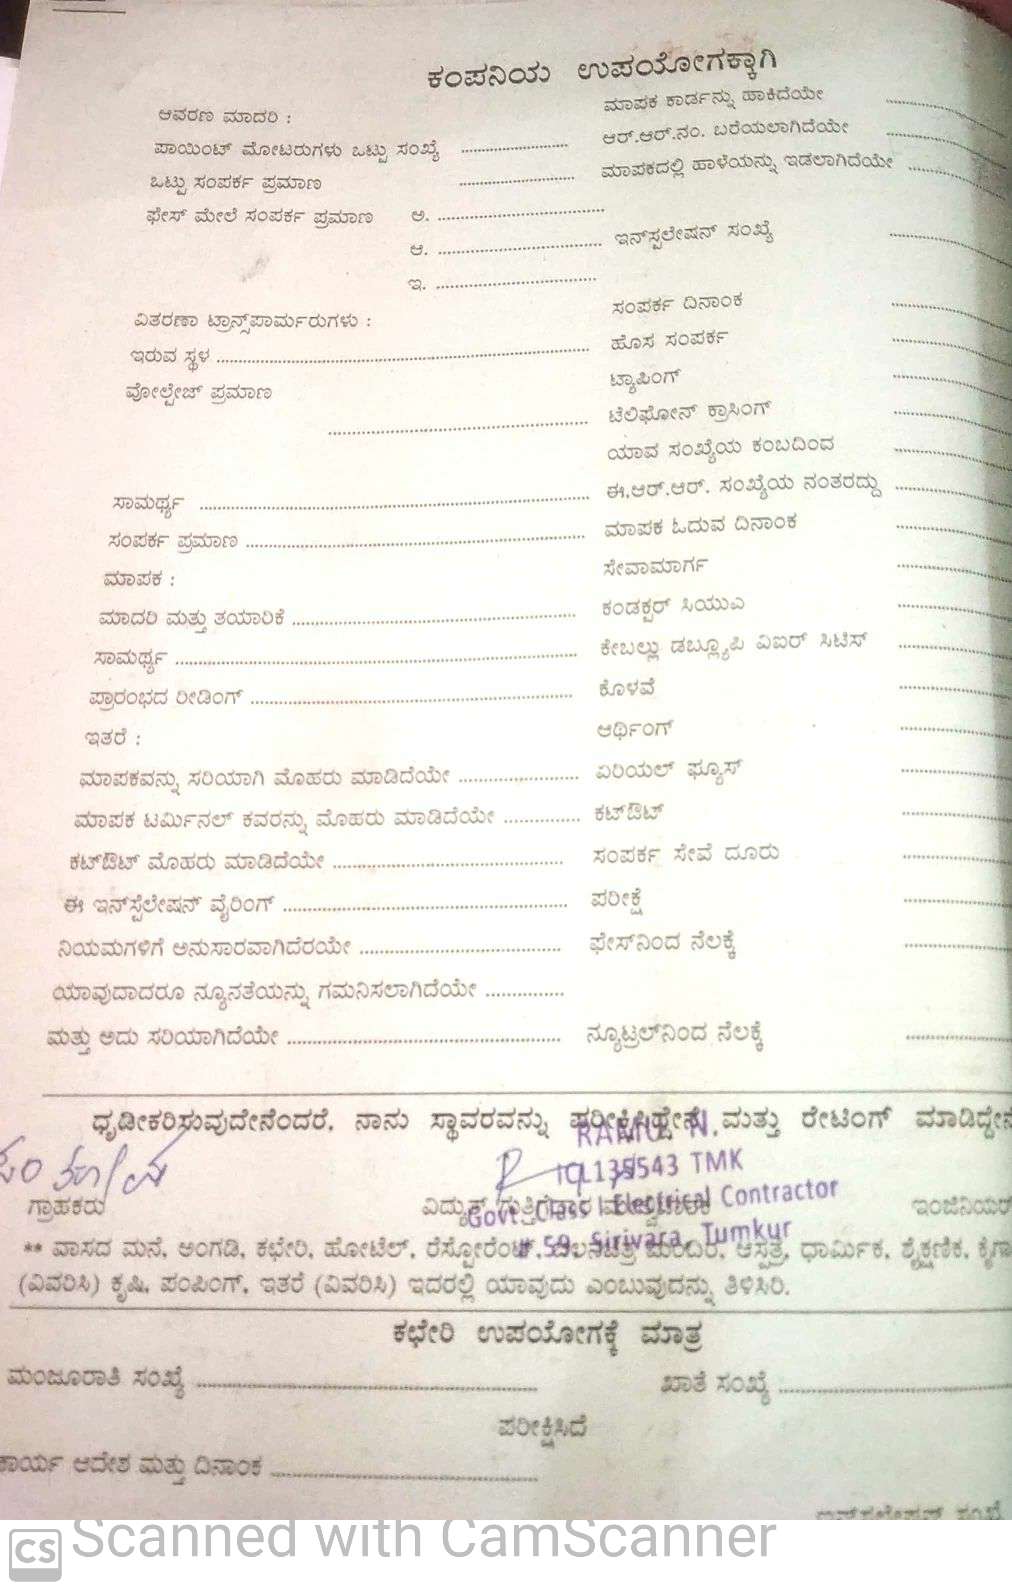 ಕಂಪನಿಯ ಉಪಯೋಗಕ್ಕಾಗಿ
ಆವರಣ ಮಾದರಿ :
ಮಾಪಕ ಕಾರ್ಡನ್ನು ಹಾಕಿದೆಯೇ
ಪಾಯಿಂಟ್ ಮೋಟರುಗಳು ಒಟ್ಟು ಸಂಖ್ಯೆ
ಆರ್.ಆರ್.ನಂ. ಬರೆಯಲಾಗಿದೆಯೇ
ಒಟ್ಟು ಸಂಪರ್ಕ ಪ್ರಮಾಣ
ಮಾಪಕದಲ್ಲಿ ಹಾಳೆಯನ್ನು ಇಡಲಾಗಿದೆಯೇ
ಫೇಸ್ ಮೇಲೆ ಸಂಪರ್ಕ ಪ್ರಮಾಣ ಅ.
ಆ.
ಇನ್‌ಸ್ಟಲೇಷನ್ ಸಂಖ್ಯೆ
ಇ.
ವಿತರಣಾ ಟ್ರಾನ್ಸ್‌ಪಾರ್ಮರುಗಳು :
ಸಂಪರ್ಕ ದಿನಾಂಕ
ಇರುವ ಸ್ಥಳ
ಹೊಸ ಸಂಪರ್ಕ
ವೋಲ್ಟೇಜ್ ಪ್ರಮಾಣ
ಟ್ಯಾಪಿಂಗ್
ಟೆಲಿಫೋನ್ ಕ್ರಾಸಿಂಗ್
ಯಾವ ಸಂಖ್ಯೆಯ ಕಂಬದಿಂದ
ಸಾಮರ್ಥ್ಯ
ಈ.ಆರ್.ಆರ್. ಸಂಖ್ಯೆಯ ನಂತರದ್ದು
ಸಂಪರ್ಕ ಪ್ರಮಾಣ
ಮಾಪಕ ಓದುವ ದಿನಾಂಕ
ಮಾಪಕ :
ಸೇವಾಮಾರ್ಗ
ಮಾದರಿ ಮತ್ತು ತಯಾರಿಕೆ
ಕಂಡಕ್ಟರ್ ಸಿಯುಎ
ಸಾಮರ್ಥ್ಯ
ಕೇಬಲ್ಲು ಡಬ್ಲ್ಯೂಪಿ ವಿಐರ್ ಸಿಟಿಸ್
ಪ್ರಾರಂಭದ ರೀಡಿಂಗ್
ಕೊಳವೆ
ಇತರೆ :
ಆರ್ಥಿಂಗ್
ಮಾಪಕವನ್ನು ಸರಿಯಾಗಿ ಮೊಹರು ಮಾಡಿದೆಯೇ
ಏರಿಯಲ್ ಫ್ಯೂಸ್
ಮಾಪಕ ಟರ್ಮಿನಲ್ ಕವರನ್ನು ಮೊಹರು ಮಾಡಿದೆಯೇ
ಕಟ್‌ಔಟ್
ಕಟ್‌ಔಟ್ ಮೊಹರು ಮಾಡಿದೆಯೇ
ಸಂಪರ್ಕ ಸೇವೆ ದೂರು
ಈ ಇನ್‌ಸ್ಟೆಲೇಷನ್ ವೈರಿಂಗ್
ಪರೀಕ್ಷೆ
ನಿಯಮಗಳಿಗೆ ಅನುಸಾರವಾಗಿದೆರಯೇ
ಫೇಸ್‌ನಿಂದ ನೆಲಕ್ಕೆ
ಯಾವುದಾದರೂ ನ್ಯೂನತೆಯನ್ನು ಗಮನಿಸಲಾಗಿದೆಯೇ
ಮತ್ತು ಅದು ಸರಿಯಾಗಿದೆಯೇ
ನ್ಯೂಟ್ರಲ್‌ನಿಂದ ನೆಲಕ್ಕೆ
ಧೃಡೀಕರಿಸುವುದೇನೆಂದರೆ, ನಾನು ಸ್ಥಾವರವನ್ನು ಪರೀಕ್ಷಿಸಿದ್ದೇನೆ ಮತ್ತು ರೇಟಿಂಗ್ ಮಾಡಿದ್ದೇನೆ
RAMU N.
TMK
Govt. Class I Electrical Contractor
# 59, Sirivara, Tumkur
ಗ್ರಾಹಕರು
ವಿದ್ಯುತ್ ಗುತ್ತಿಗೆದಾರ
ಇಂಜಿನಿಯರ್
** ವಾಸದ ಮನೆ, ಅಂಗಡಿ, ಕಛೇರಿ, ಹೋಟೆಲ್, ರೆಸ್ಟೋರೆಂಟ್, ಚಲನಚಿತ್ರ ಮಂದಿರ, ಆಸ್ಪತ್ರೆ, ಧಾರ್ಮಿಕ, ಶೈಕ್ಷಣಿಕ, ಕೈಗಾ
(ವಿವರಿಸಿ) ಕೃಷಿ, ಪಂಪಿಂಗ್, ಇತರೆ (ವಿವರಿಸಿ) ಇದರಲ್ಲಿ ಯಾವುದು ಎಂಬುವುದನ್ನು ತಿಳಿಸಿರಿ.
ಕಛೇರಿ ಉಪಯೋಗಕ್ಕೆ ಮಾತ್ರ
ಮಂಜೂರಾತಿ ಸಂಖ್ಯೆ
ಖಾತೆ ಸಂಖ್ಯೆ
ಪರೀಕ್ಷಿಸಿದೆ
ಕಾರ್ಯ ಆದೇಶ ಮತ್ತು ದಿನಾಂಕ
CS Scanned with CamScanner